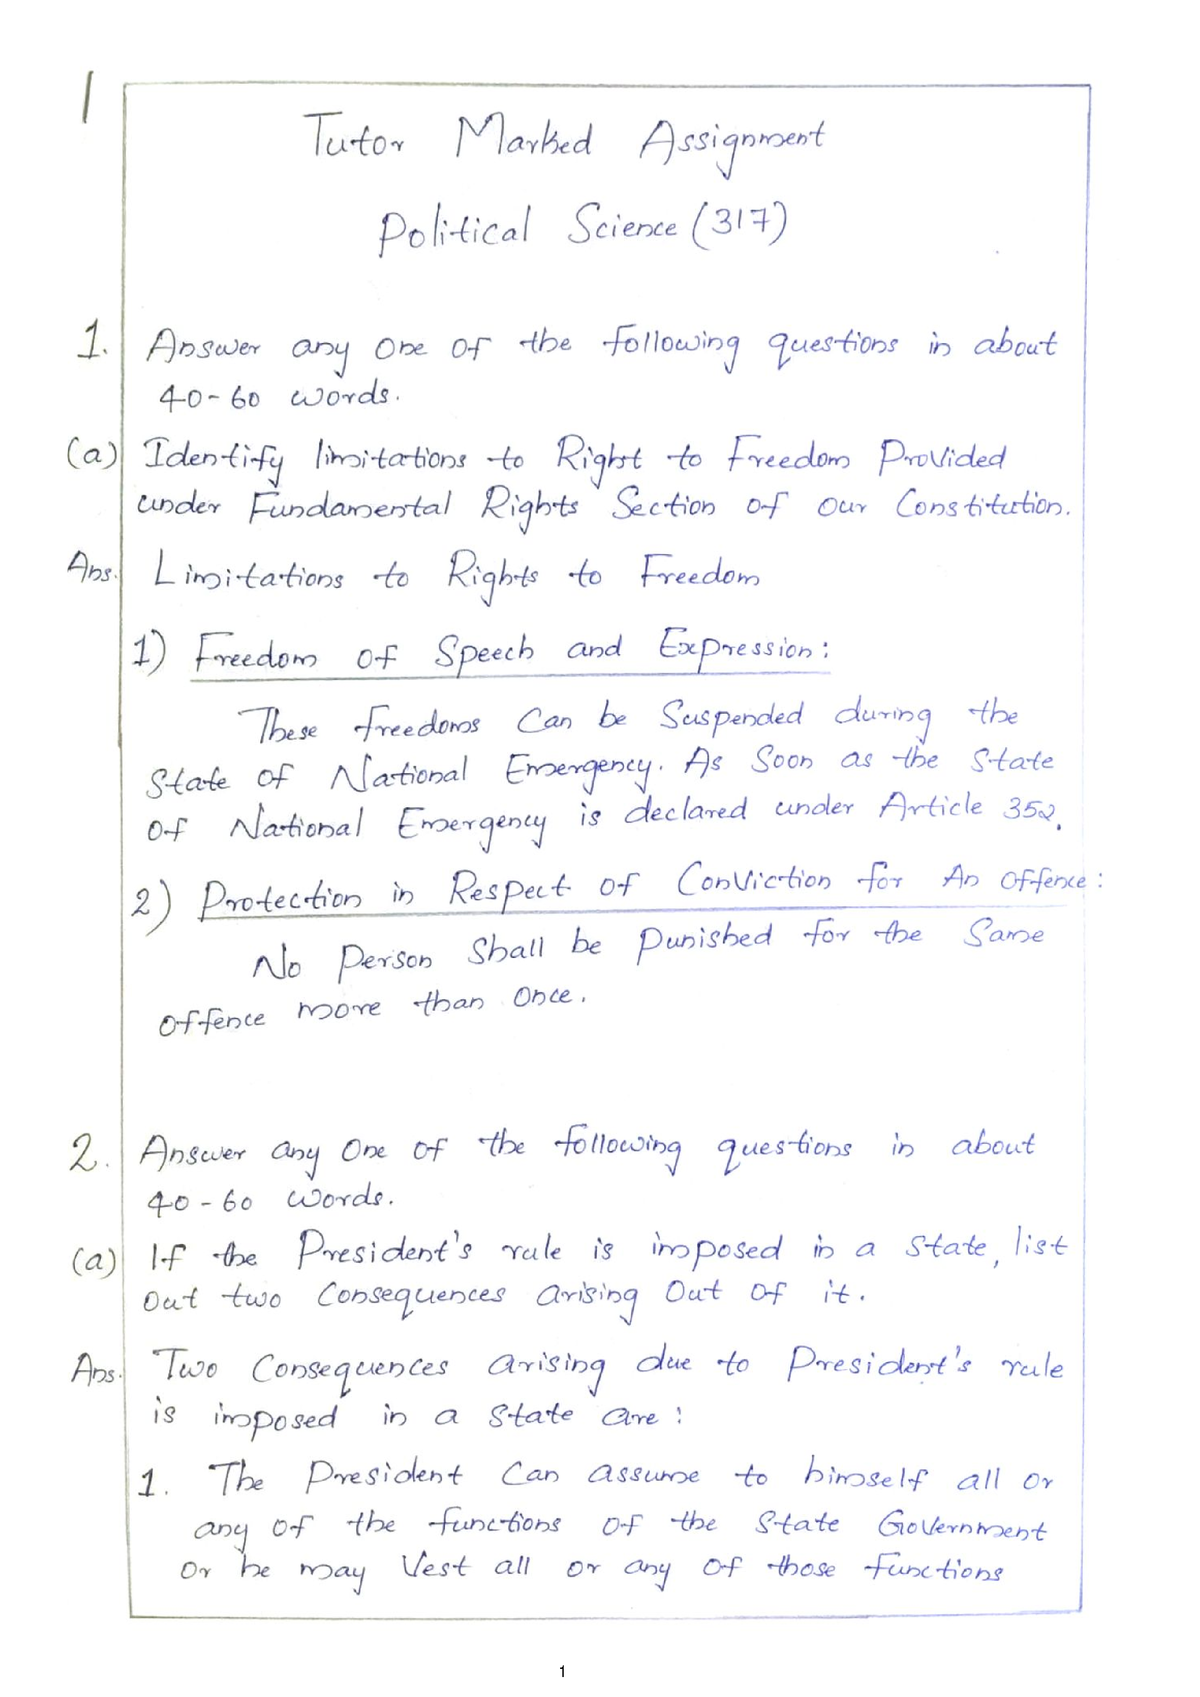 1
Tutor Marked Assignment
Political Science (317)
1. Answer any one of the following questions in about
40-60 words.
(a) Identify limitations to Right to Freedom Provided
under Fundamental Rights Section of our Constitution.
Ans. Limitations to Rights to Freedom
1) Freedom of Speech and Expression:
These freedoms Can be Suspended during the
State of National Emergency. As Soon as the State
of National Emergency is declared under Article 352.
2) Protection in Respect of Conviction for An offence:
No Person Shall be Punished for the Same
offence more than Once.
2. Answer any One of the following questions in about
40-60 words.
(a) If the President's rule is imposed in a State, list
Out two Consequences arising Out of it.
Ans. Two Consequences arising due to President's rule
is imposed in a State are:
1. The President Can assume to himself all or
any of the functions of the State Government
Or he may Vest all or any of those functions
1